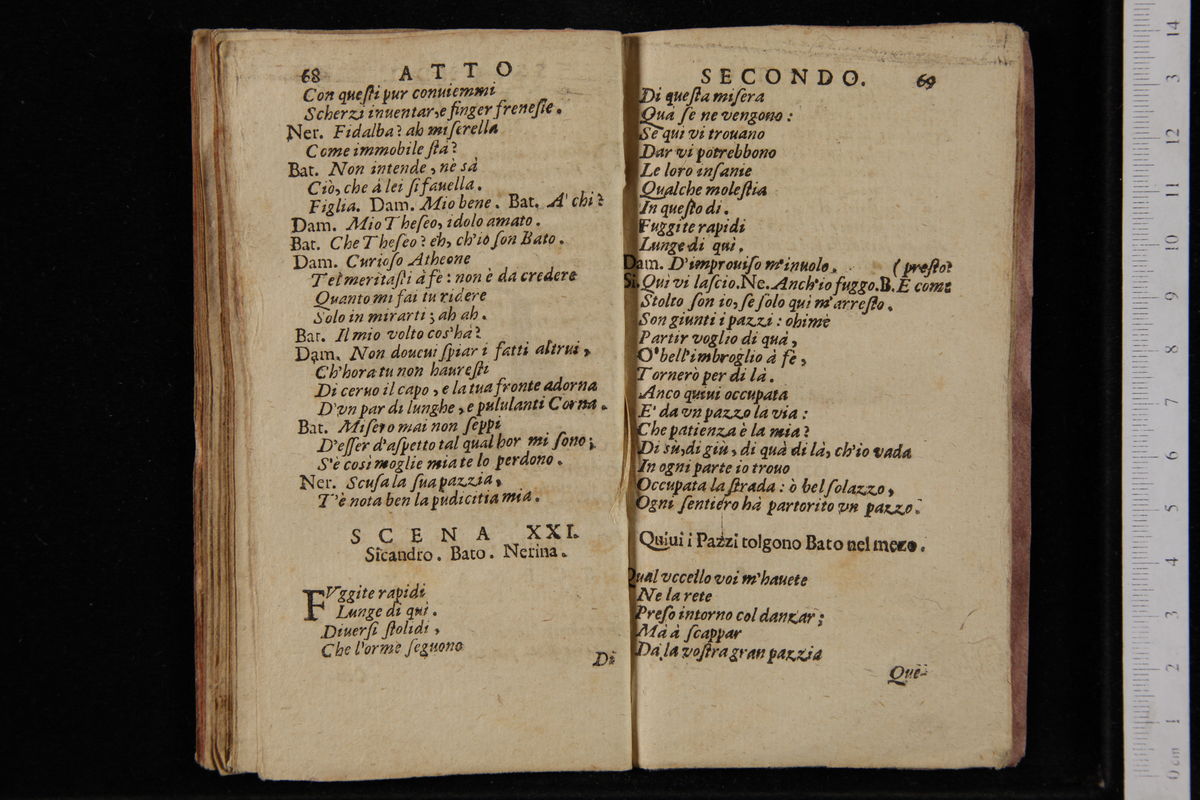 68 ATTO
Con queſti pur conuiemmi
Scherzi inuentar, e finger freneſie.
Ner. Fidalba? ah miſerella
Come immobile ſtà?
Bat. Non intende, nè sà
Ciò, che à lei ſi fauella.
Figlia. Dam. Mio bene. Bat. A' chi?
Dam. Mio Theſeo, idolo amato.
Bat. Che Theſeo? eh, ch'io ſon Bato.
Dam. Curioſo Atheone
Te'l meritaſti à fè: non è da credere
Quanto mi fai tu ridere
Solo in mirarti; ah ah.
Bat. Il mio volto cos'hà?
Dam. Non doueui ſpiar i fatti altrui,
Ch'hora tu non haureſti
Di ceruo il capo, e la tua fronte adorna
D'vn par di lunghe, e pululanti Corna.
Bat. Miſero mai non ſeppi
D'eſſer d'aſpetto tal qual hor mi ſono;
S'è cosi moglie mia te lo perdono.
Ner. Scuſa la ſua pazzia,
T'è nota ben la pudicitia mia.
SCENA XXI.
Sicandro. Bato. Nerina.
FVggite rapidi
Lunge di qui.
Diuerſi ſtolidi,
Che l'orme ſeguono
Di
SECONDO. 69
Di queſta miſera
Quà ſe ne vengono:
Se qui vi trouano
Dar vi potrebbono
Le loro inſanie
Qualche moleſtia
In queſto di.
Fuggite rapidi
Lunge di qui.
Dam. D'improuiſo m'inuolo. (preſto?
Si. Qui vi laſcio. Ne. Anch'io fuggo. B. E come
Stolto ſon io, ſe ſolo qui m'arreſto.
Son giunti i pazzi: ohime
Partir voglio di quà,
O' bell'imbroglio à fè,
Tornerò per di là.
Anco quiui occupata
E' da vn pazzo la via:
Che patienza è la mia?
Di sù, di giù, di quà di là, ch'io vada
In ogni parte io trouo
Occupata la ſtrada: ò bel ſolazzo,
Ogni ſentiero hà partorito vn pazzo.
Quiui i Pazzi tolgono Bato nel mezo.
Qual vccello voi m'hauete
Ne la rete
Preſo intorno col danzar;
Mà à ſcappar
Da la voſtra gran pazzia
Que-